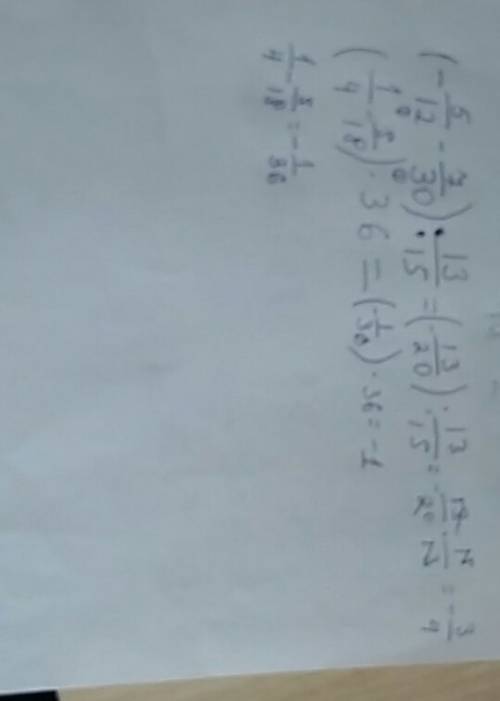 (-5/12 - 7/30) : 13/15 = (-13/20) : 13/15 = - 13/20 · 15/13 = -3/4
(1/4 - 5/18) · 36 = (-1/36) · 36 = -1
1/4 - 5/18 = -1/36